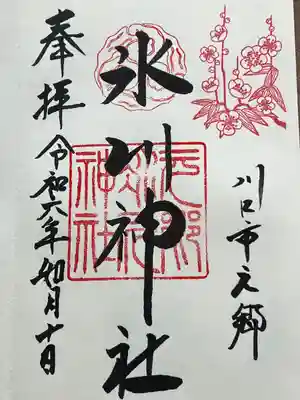 川口市元郷
氷川神社
奉拝
令和六年如月十日